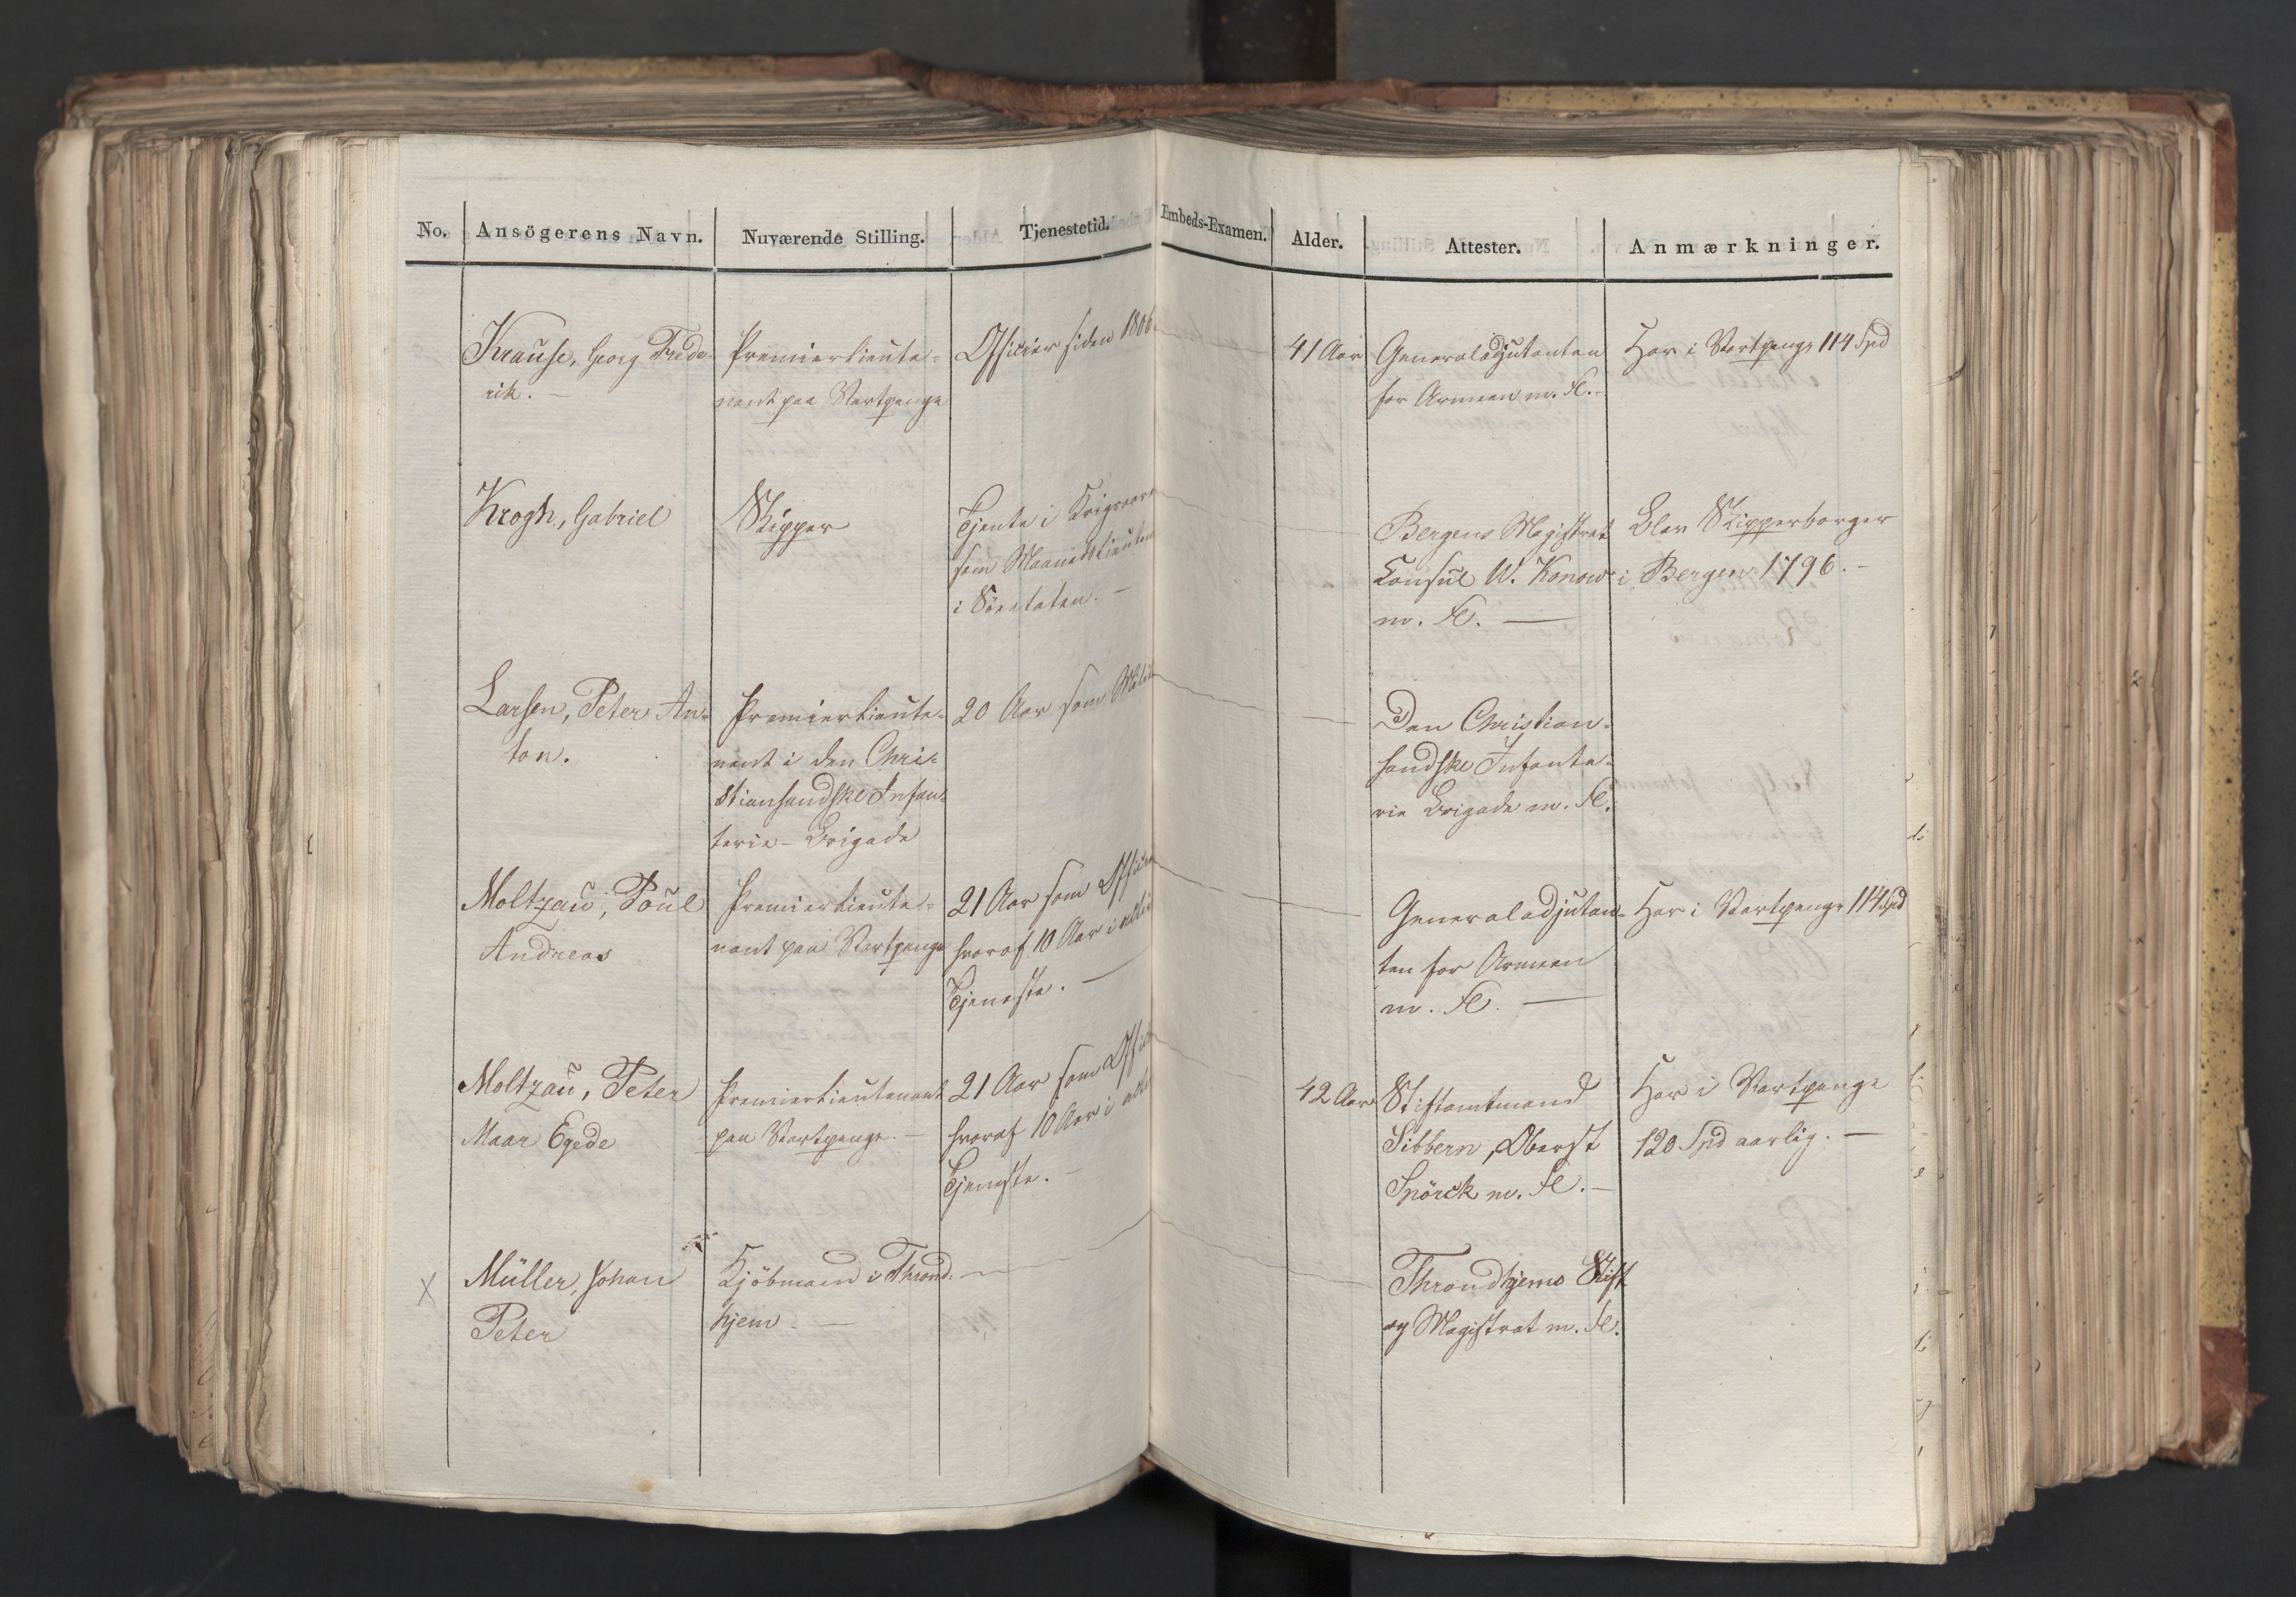 No. Ansögerens Navn. Nuværende Stilling. Tjenestetid. Embeds-Examen. Alder. Attester. Anmærkninger.
Krause, Georg Frede-
rik. —
Premierlieute-
nant paa Vartpenge
Officier siden 1806
41 Aar
Generaladjutanten
for Armeen m. Fl. -
Har i Vartpenge 114 Spd
Krogh, Gabriel
Skipper
Tjente i Krigsaar
som Maanedslieuten
i Söeetaten. —
Bergens Magistrat
Consul W. Konow
m. Fl. —
Blev Skipperborger
i Bergen 1796. —
Larsen, Peter An-
ton.
Premierlieute-
nant i den Chri-
stiansandske Infan-
terie-Brigade
20 Aar som
Den Christian-
sandske Infante-
rie Brigade m. Fl.
Moltzau, Poul
Andreas
Premierlieute-
nant paa Vartpenge
21 Aar som Officier
hvoraf 10 Aar i
Tjeneste. —
Generaladjutan-
ten for Armeen
m. Fl. —
Har i Vartpenge 114 Spd
Moltzau, Peter
Maar Egede
Premierlieutenant
paa Vartpenge. —
21 Aar som
hvoraf 10 Aar i
Tjeneste. —
42 Aar
Stiftamtmand
Sibbern, Oberst
Spörck m. Fl. —
Har i Vartpenge
120 Spd aarlig. —
x Müller, Johan
Peter
Kjöbmand i Thrond-
hjem —
Throndhjems Stift
og Magistrat m. Fl.